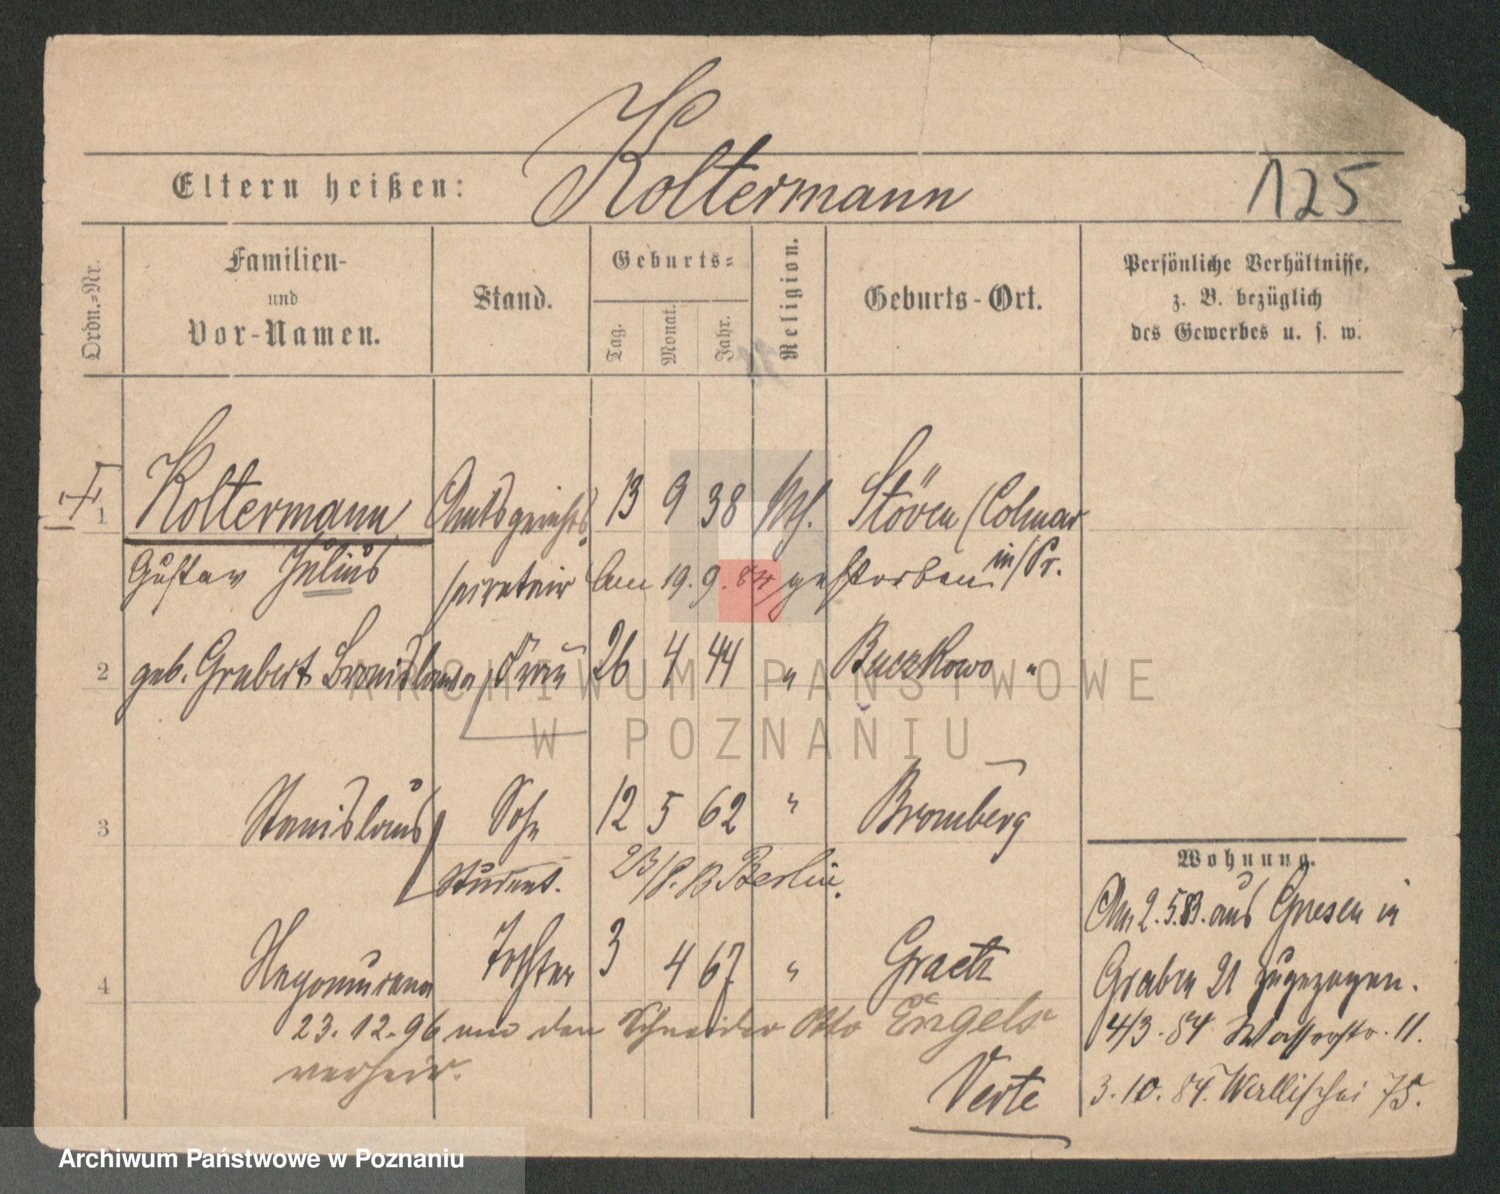 Koltermann
Eltern heißen:
125
Ordn.-Nr.
Familien-
und
Vor-Namen.
Stand.
Geburts-
Tag.
Monat.
Jahr.
Religion.
Geburts-Ort.
Persönliche Verhältnisse,
z. B. bezüglich
des Gewerbes u. s. w.
1 Koltermann Amtsgerichts 13 9 38 Stöven (Colmar
Gustav Julius secretair Am 19. 9. gestorben in/Pr.
2 geb. Grubert Bronislawa Frau 26 4 44 " Buczkowo "
3 Stanislaus Sohn 12 5 62 " Bromberg
Student. Berlin.
4 Tochter 3 4 67 " Graetz
23.12.96 mit dem Schneider Otto Engels
verheir.
Verte
Wohnung.
Am 2.5.83. aus Gnesen in
Graben 21 zugezogen.
4/3.84 Wasserstr. 11.
3.10.84. Wallischei 75.
ARCHIWUM PAŃSTWOWE
W POZNANIU
Archiwum Państwowe w Poznaniu